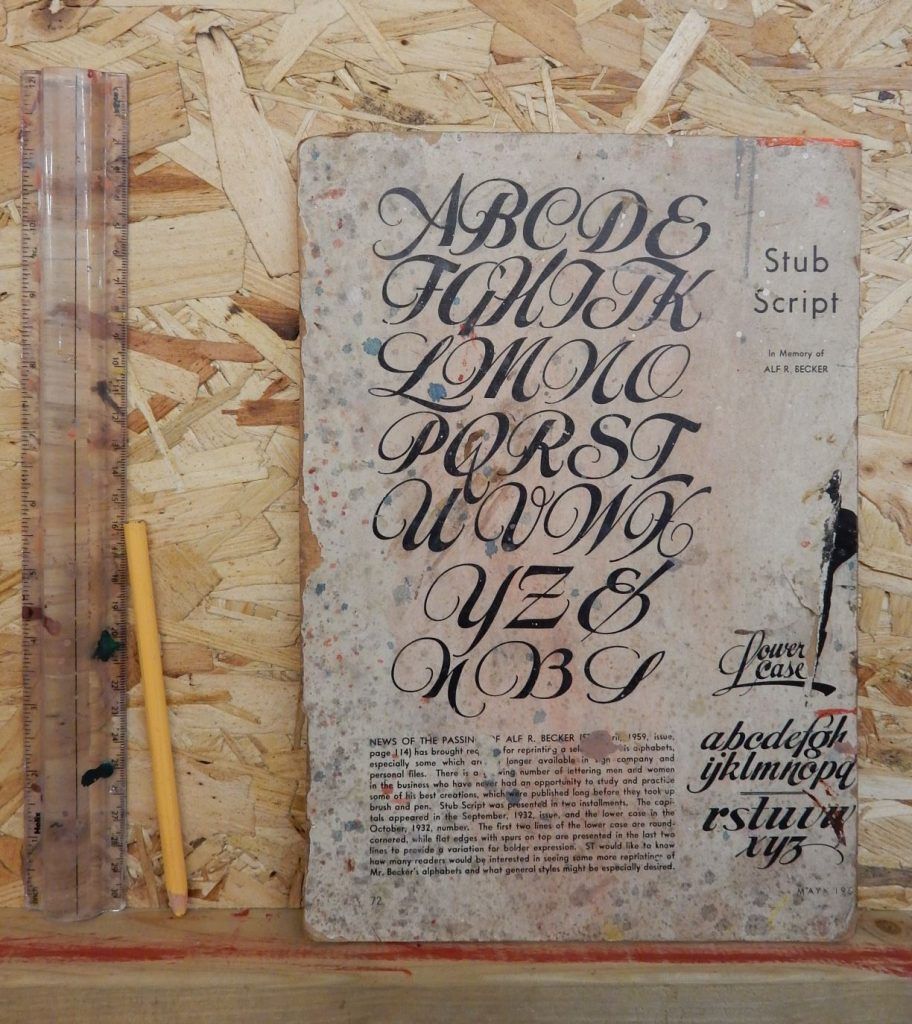 ABCDE
FGHIJK
LMNO
PQRST
UVWX
YZ&
NBS
Stub
Script
In Memory of
ALF R. BECKER
NEWS OF THE PASSIN OF ALF R. BECKER (ST 1959, issue,
page 114) has brought for reprinting a alphabets,
especially some which longer available in company and
personal files. There is a number of lettering men and women
in the business who have never had an opportunity to study and practice
some of his best creations, which were published long before they took up
brush and pen. Stub Script was presented in two installments. The capi-
tals appeared in the September, 1932, issue, and the lower case in the
October, 1932, number. The first two lines of the lower case are round-
cornered, while flat edges with spurs on top are presented in the last two
lines to provide a variation for bolder expression. ST would like to know
how many readers would be interested in seeing some more reprintings of
Mr. Becker's alphabets and what general styles might be especially desired.
72
Lower
Case
abcdefgh
ijklmnopq
rstuvw
xyz
Helix